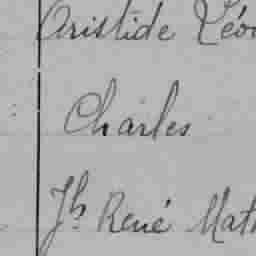 Aristide Léon
Charles
Jh René Math